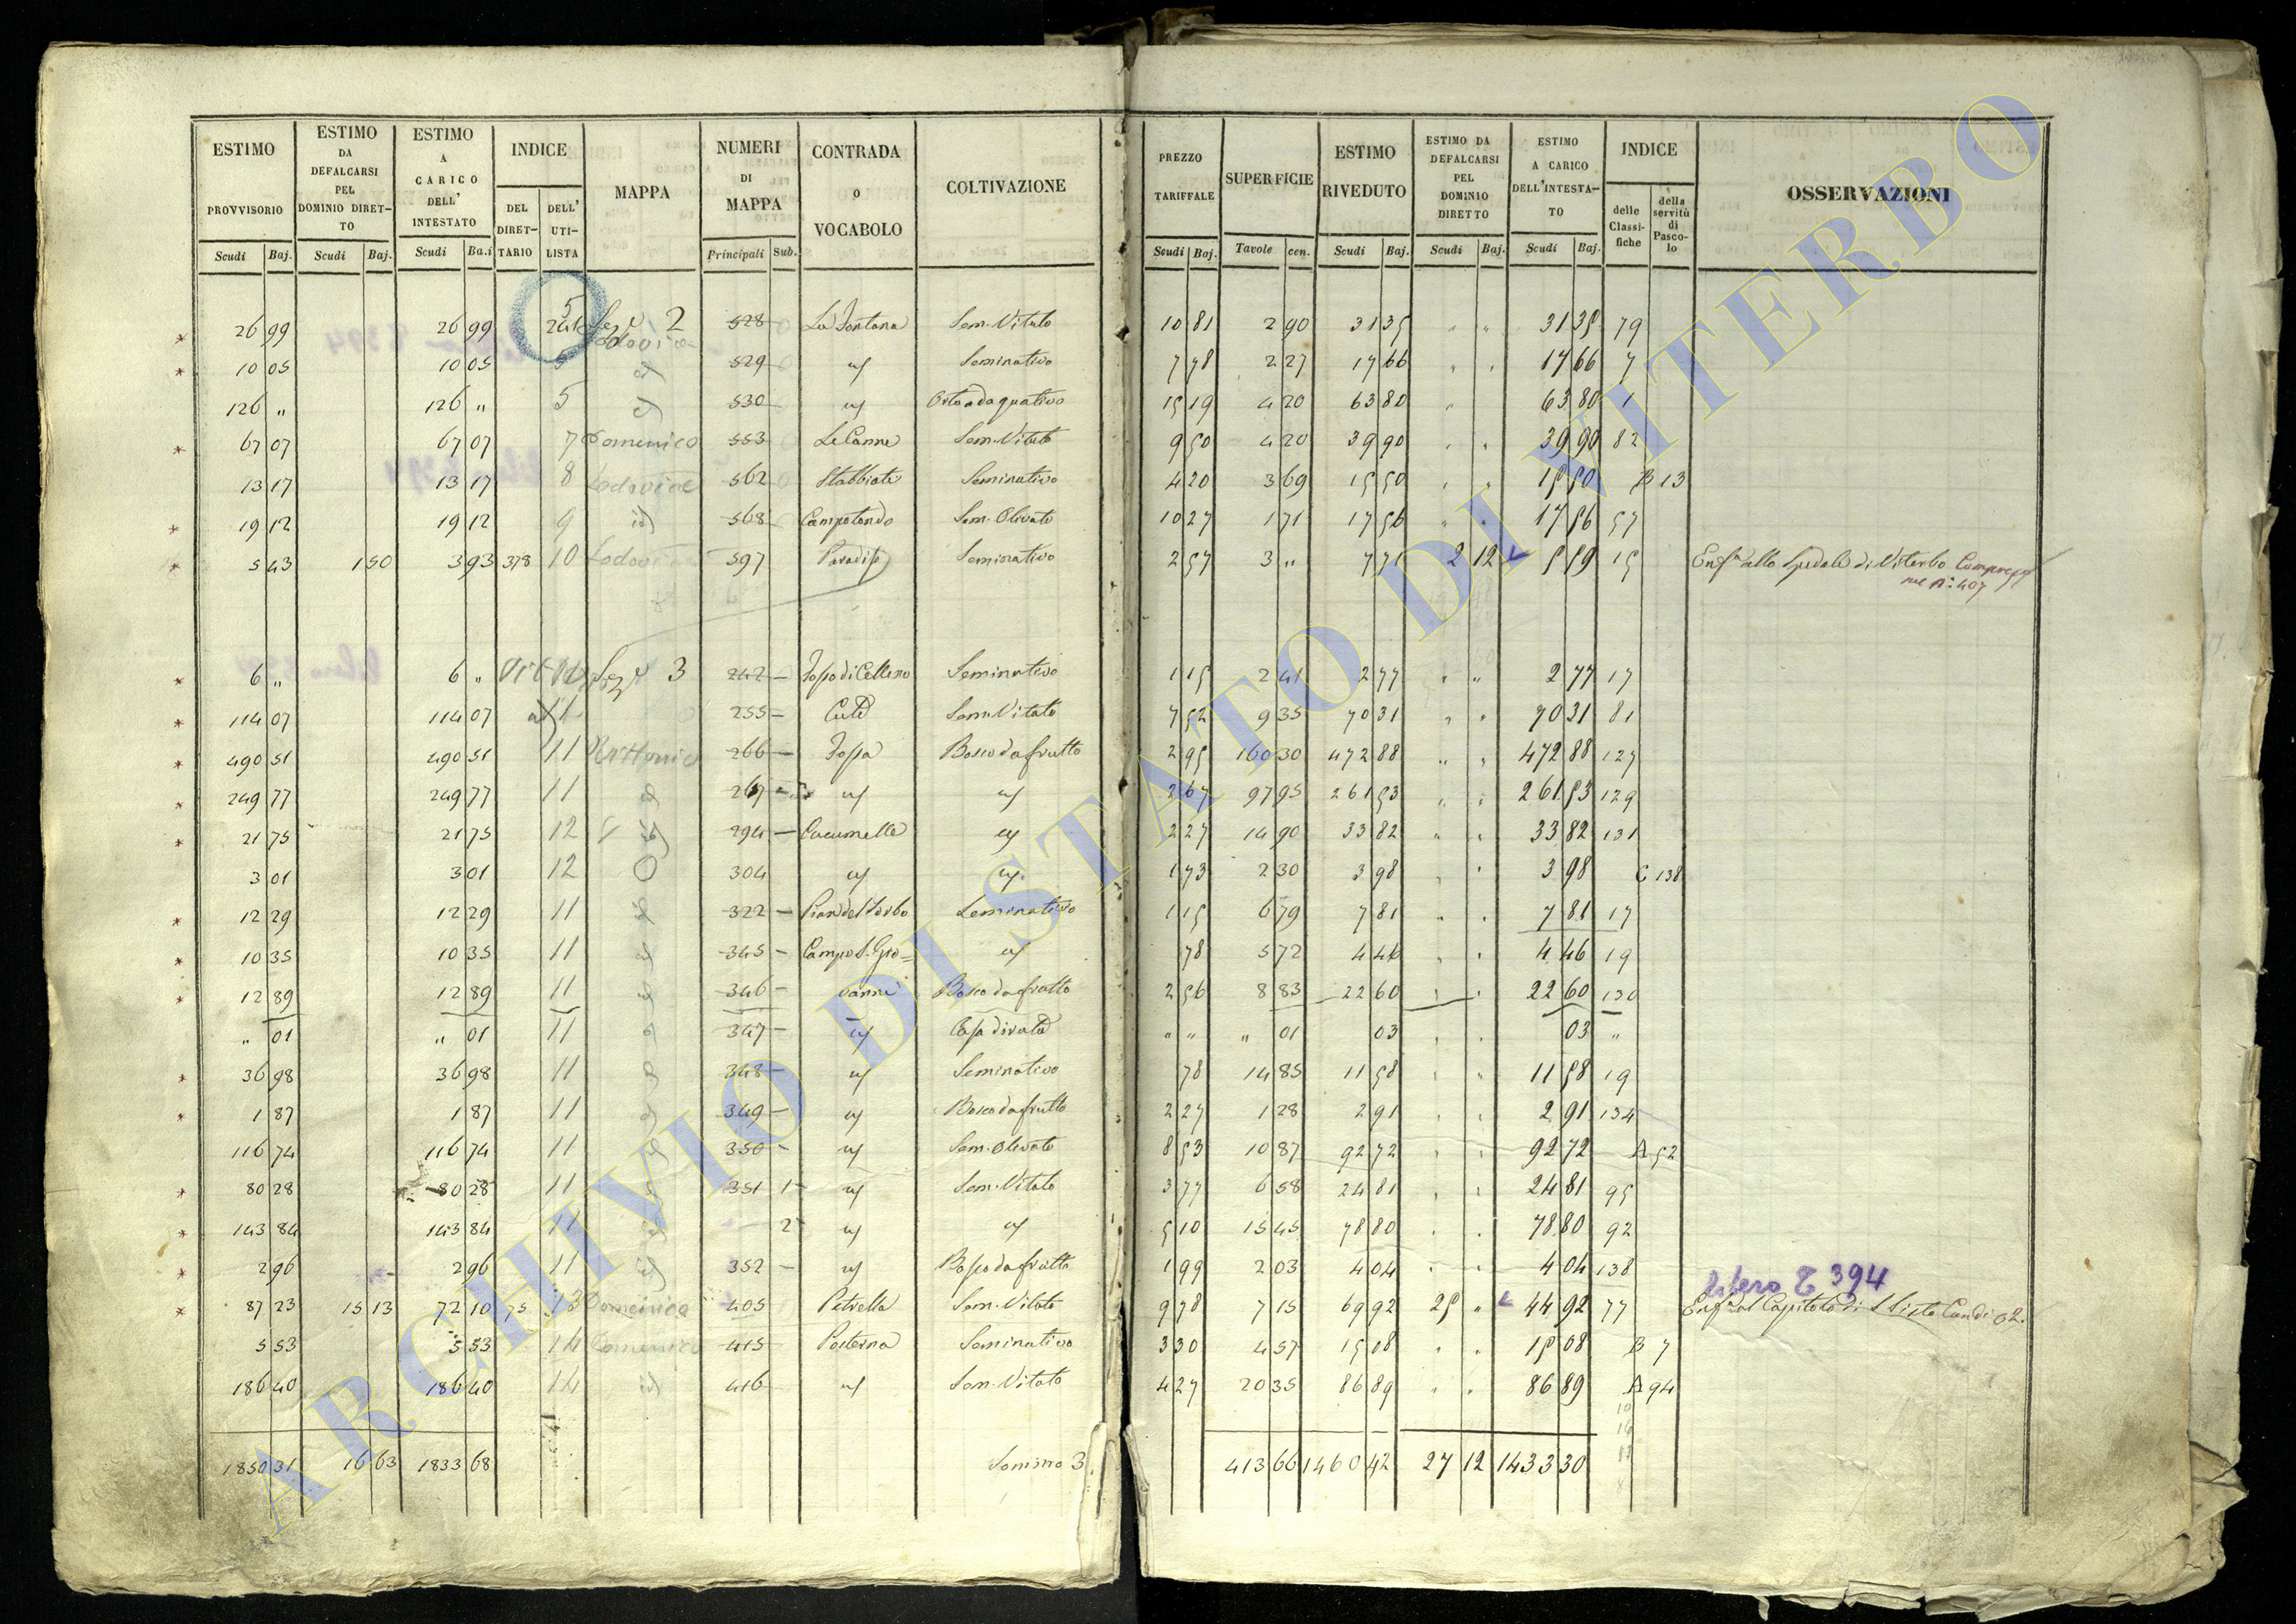 ESTIMO PROVVISORIO Scudi Baj.
ESTIMO DA DEFALCARSI PEL DOMINIO DIRETTO Scudi Baj.
ESTIMO A CARICO DELL' INTESTATO Scudi Ba.i
INDICE DEL DIRETTARIO DELL' UTILISTA
MAPPA
NUMERI DI MAPPA Principali Sub.
CONTRADA o VOCABOLO
COLTIVAZIONE
PREZZO TARIFFALE Scudi Baj.
SUPERFICIE Tavole cen.
ESTIMO RIVEDUTO Scudi Baj.
ESTIMO DA DEFALCARSI PEL DOMINIO DIRETTO Scudi Baj.
ESTIMO A CARICO DELL'INTESTATO Scudi Baj.
INDICE delle Classifiche della servitù di Pascolo
OSSERVAZIONI
26 99 26 99 5 Sez e 2 528 La Fontana Sem. Vitato 10 81 2 90 31 35 " " 31 35 79
Lodovico
10 05 10 05 5 id 529 id Seminativo 7 78 2 27 17 66 " " 17 66 7
126 " 126 " 5 id 530 id Orto adaquativo 15 19 4 20 63 80 " 63 80 1
67 07 67 07 7 Domenico 553 Le Canne Sem. Vitato 9 50 4 20 39 90 " " 39 90 82
13 17 13 17 8 Lodovico 562 Stabbiate Seminativo 4 20 3 69 15 50 " " 15 50 B 13
19 12 19 12 9 id 568 Campotondo Sem. Olivato 10 27 1 71 17 56 " " 17 56 57
5 43 1 50 3 93 378 10 Lodovico 597 Paradiso Seminativo 2 57 3 " 7 71 2 12 5 59 15 Enf.a allo Spedale di Viterbo Compreso
nel N: 407
6 " 6 " Sez e 3 242 Fosso di Celleno Seminativo 1 15 2 41 2 77 " " 2 77 17
114 07 114 07 11 255 Sem. Vitato 7 52 9 35 70 31 " " 70 31 81
490 51 490 51 11 266 Fossa Bosco da frutto 2 95 160 30 472 88 " " 472 88 127
249 77 249 77 11 id 267 id id 2 67 97 95 261 53 " " 261 53 129
21 75 21 75 12 id 294 Cucumelle id 2 27 14 90 33 82 " " 33 82 131
3 01 3 01 12 304 id id 1 73 2 30 3 98 " " 3 98 C 138
12 29 12 29 11 id 322 Pian del Sorbo Seminativo 1 15 6 79 7 81 " " 7 81 17
10 35 10 35 11 id 345 Campo S. Gio= id 78 5 72 4 46 " " 4 46 19
12 89 12 89 11 id 346 vanni Bosco da frutto 2 56 8 83 22 60 " " 22 60 130
" 01 " 01 11 id 347 id Casa dirutta " " " 01 03 " " 03 "
36 98 36 98 11 id 348 id Seminativo 78 14 85 11 58 " " 11 58 19
1 87 1 87 11 id 349 id Bosco da frutto 2 27 1 28 2 91 " " 2 91 134
116 74 116 74 11 id 350 id Sem. Olivato 8 53 10 87 92 72 " " 92 72 A 52
80 28 80 28 11 id 351 1 id Sem. Vitato 3 77 6 58 24 81 " " 24 81 95
143 84 143 84 11 id 2 id id 5 10 15 45 78 80 " " 78 80 92
2 96 2 96 11 id 352 id Bosco da frutto 1 99 2 03 4 04 " " 4 04 138
libero E 394
87 23 15 13 72 10 75 13 Domenico 405 Petrella Sem. Vitato 9 78 7 15 69 92 25 " 44 92 77 Enf.a al Capitolo di S. Sisto
5 53 5 53 14 Domenico 415 Posterna Seminativo 3 30 4 57 15 08 " " 15 08 B 7
186 40 186 40 14 id 416 id Sem. Vitato 4 27 20 35 86 89 " " 86 89 A 94
1850 31 16 63 1833 68 Somma 3 413 66 1460 42 27 12 1433 30
ARCHIVIO DI STATO DI VITERBO